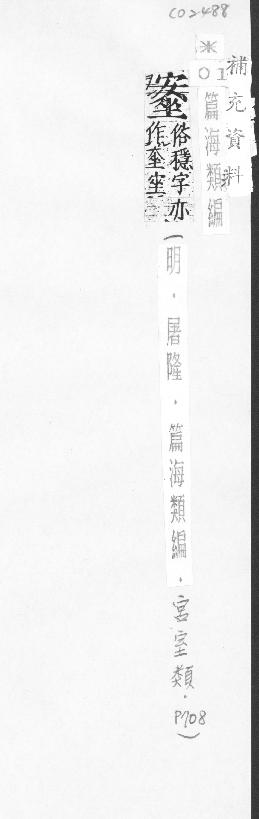 C02488
補充資料
※01篇海類編
俗穩字亦
作𡋲𡋲
(明.屠隆.篇海類編.宮室類.P708)